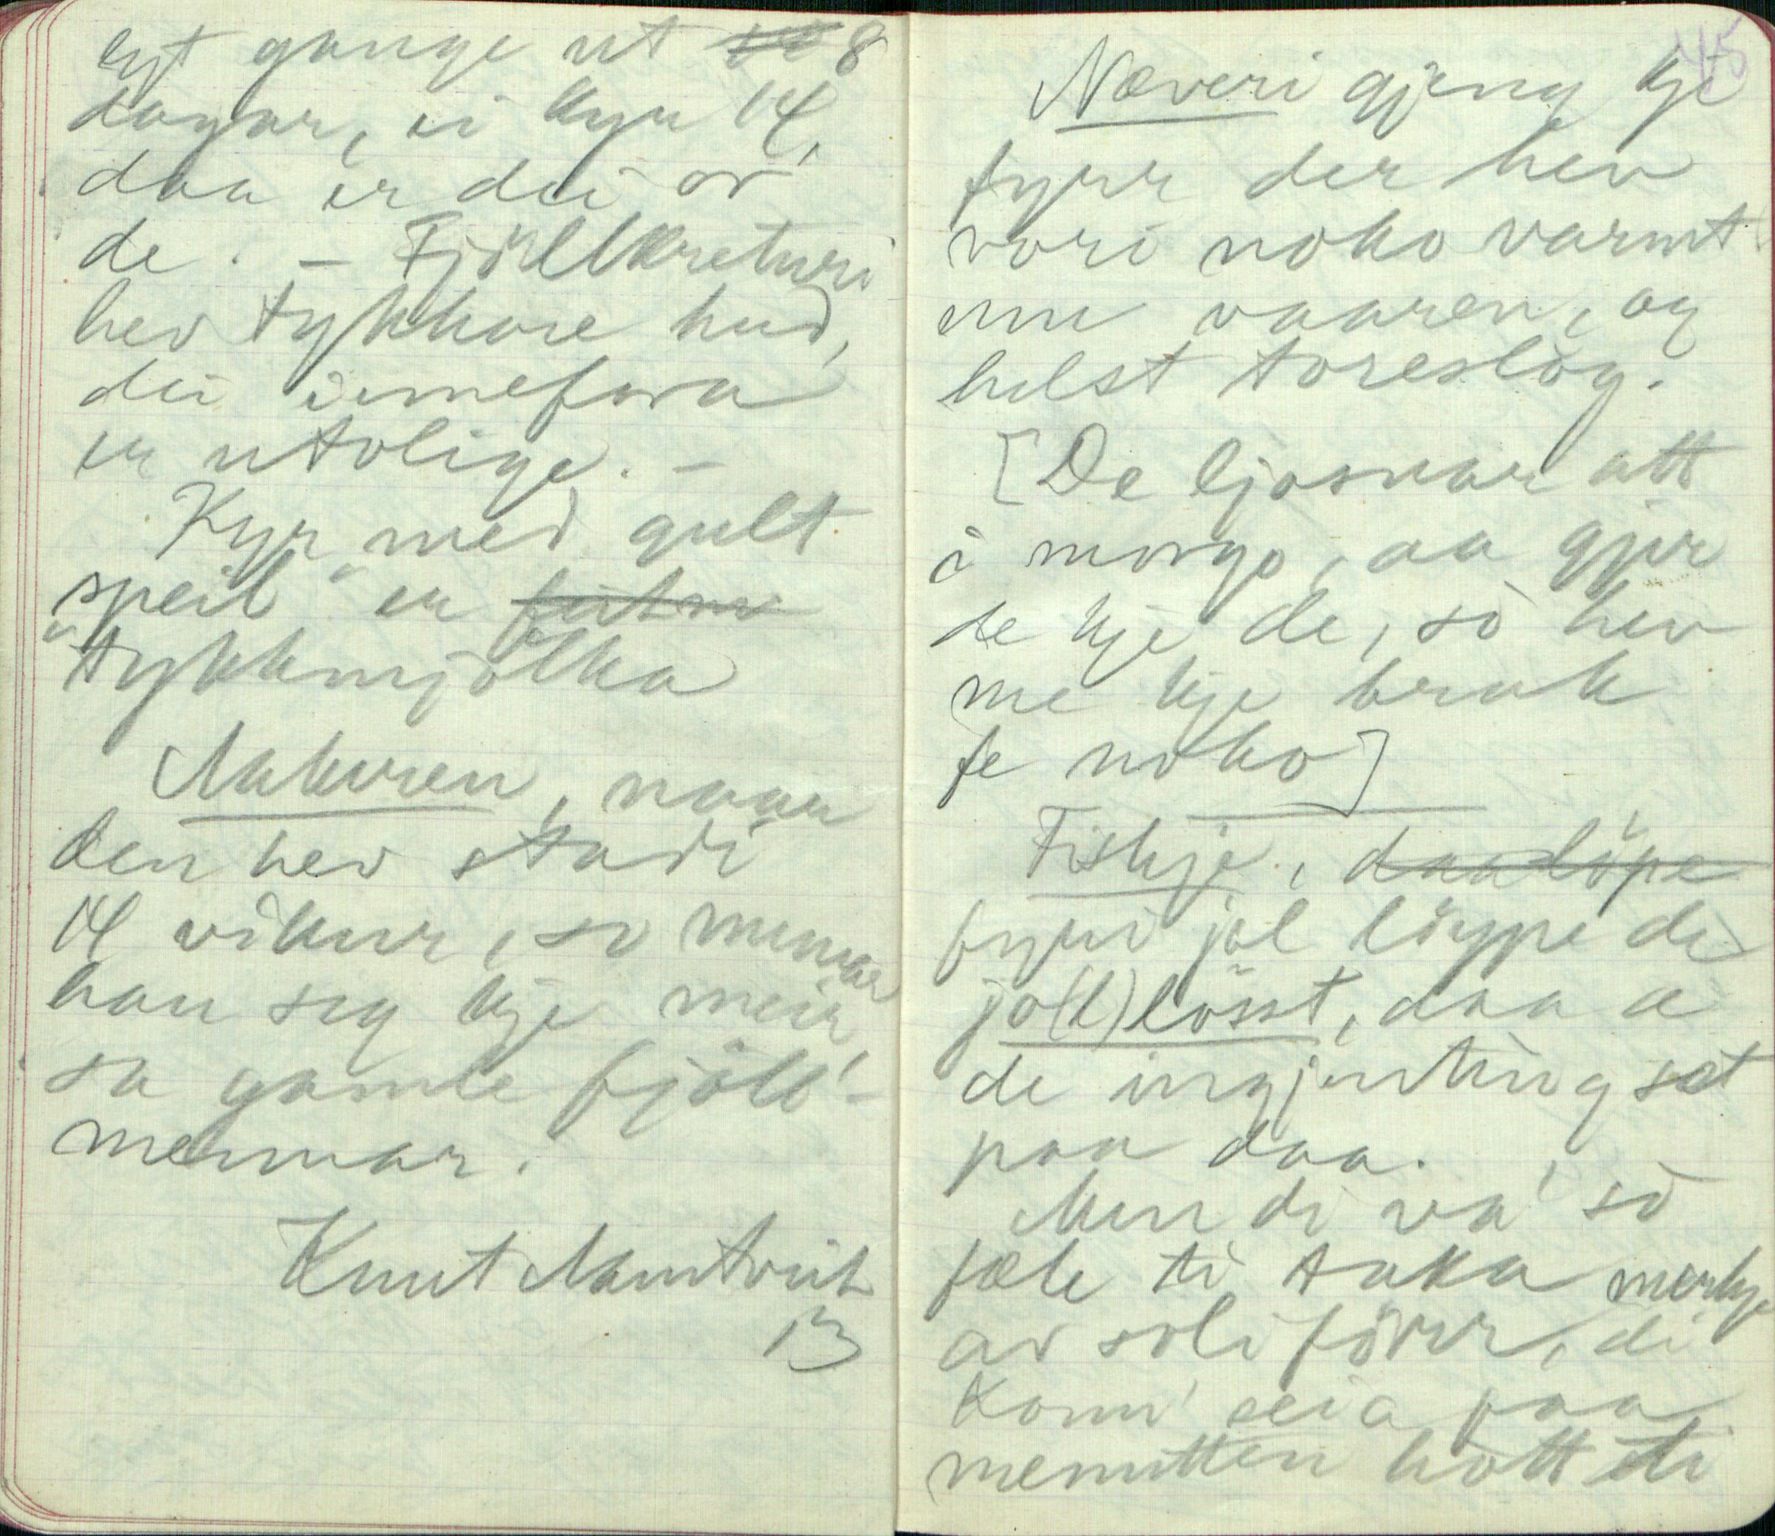 eyt gange ut 8
dagar, ei kyr 14,
daa er dei or
de. – Fjöllkreturi
hev tykkare hud,
dei innefora
er utolige. –
Kyr med gult
"speil" er
tykkmjölka
Nakuren, naar
den hev stadi
14 vikur, so munar
han seg kje meir,
sa gamle fjöll-
mennar.
Knut Mamtveit
13
45
Næveri gjeng kje
fyrr der hev
vori noko varmt
um vaaren, og
helst toreslòg.
[De ljosnar att
i morgo, aa gjer
de kje de, sò hev
me kje bruk
fe noko]
Fiskje, daa löpe
fyri jol löype de
jo(l)lösst, daa æ
de ingjenting sæt
paa daa.
Men di va' sò
fæle ti taka merkje
av soli förr, di
konn' seia paa
menutten hott ti